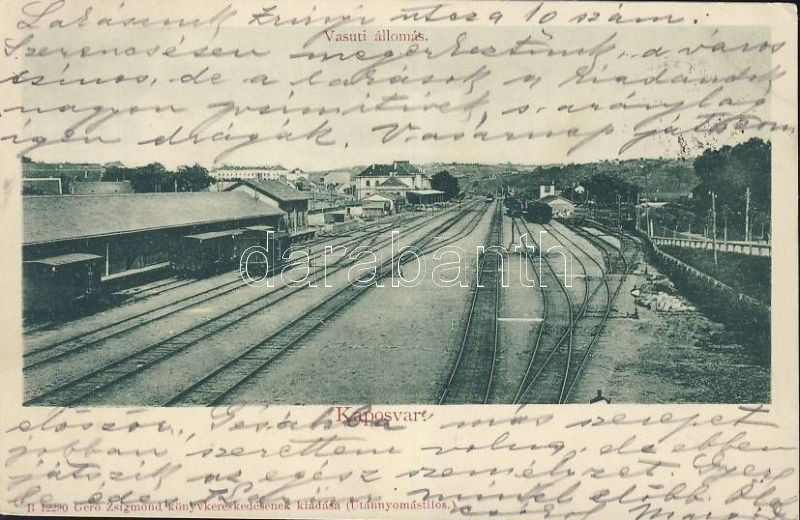 Lakásunk Zrínyi utcza 10 szám.
Vasuti állomás.
Szerencsésen megérkeztünk, a város
csinos, de a lakások a kiadandók
nagyon primitivek s aránylag
igen drágák. Vasárnap játszom
darabanth
Kaposvár.
először, más szerepet
jobban szerettem volna, de ebben
játszik az egész személyzet.
be
B 12290 Gerő Zsigmond könyvkereskedésének kiadása (Utánnyomástilos.)